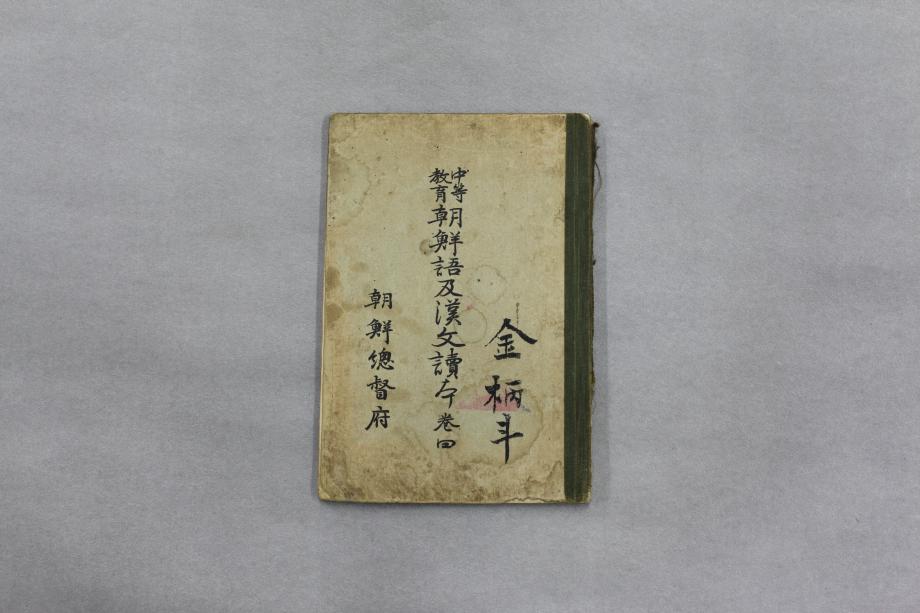 金柄斗
中等教育 朝鮮語及漢文讀本 卷四
朝鮮總督府